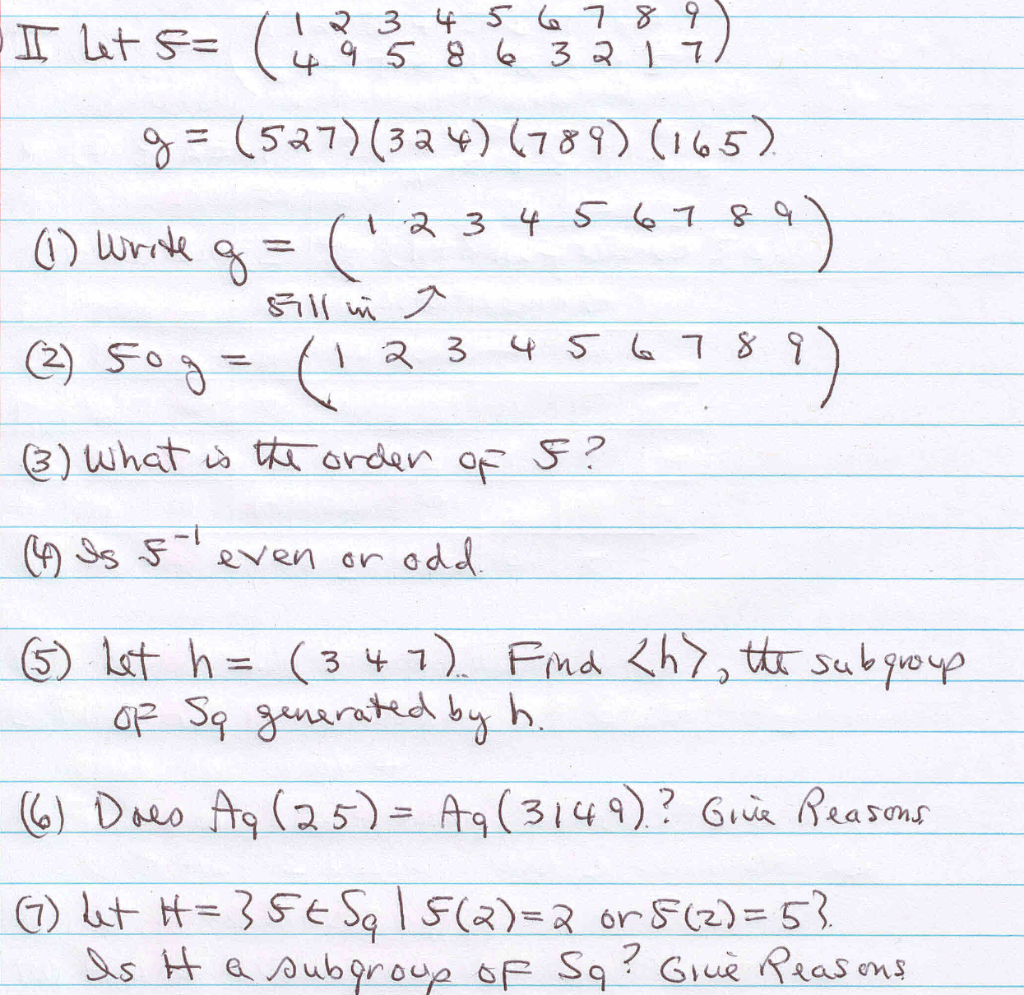 II Let f = ( 1 2 3 4 5 6 7 8 9
4 9 5 8 6 3 2 1 7 )
g = (527)(324)(789)(165).
(1) Write g = ( 1 2 3 4 5 6 7 8 9 )
fill in ↗
(2) f∘g = ( 1 2 3 4 5 6 7 8 9 )
(3) What is the order of f?
(4) Is f⁻¹ even or odd.
(5) Let h = (3 4 7). Find <h>, the subgroup
of S₉ generated by h.
(6) Does A₉(25) = A₉(3149).? Give Reasons
(7) Let H = {f ∈ S₉ | f(2)=2 or f(2)=5}.
Is H a subgroup of S₉? Give Reasons